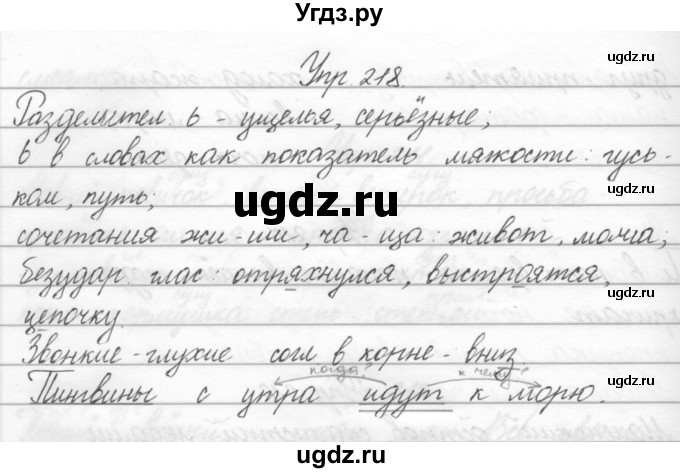 Угдз.ру
ugdz.ru
Упр. 218.
ugdz.ru
Разделител. ь - ущелья, серьёзные;
ь в словах как показатель мягкости: гусь-
ком, путь;
ugdz.ru
сочетания жи-ши, ча-ща: живот, молча;
безудар. глас: отряхнулся, выстроятся,
цепочку.
Звонкие-глухие согл в корне - вниз.
когда? к чему?
Пингвины с утра идут к морю.
ugdz.ru
ugdz.ru